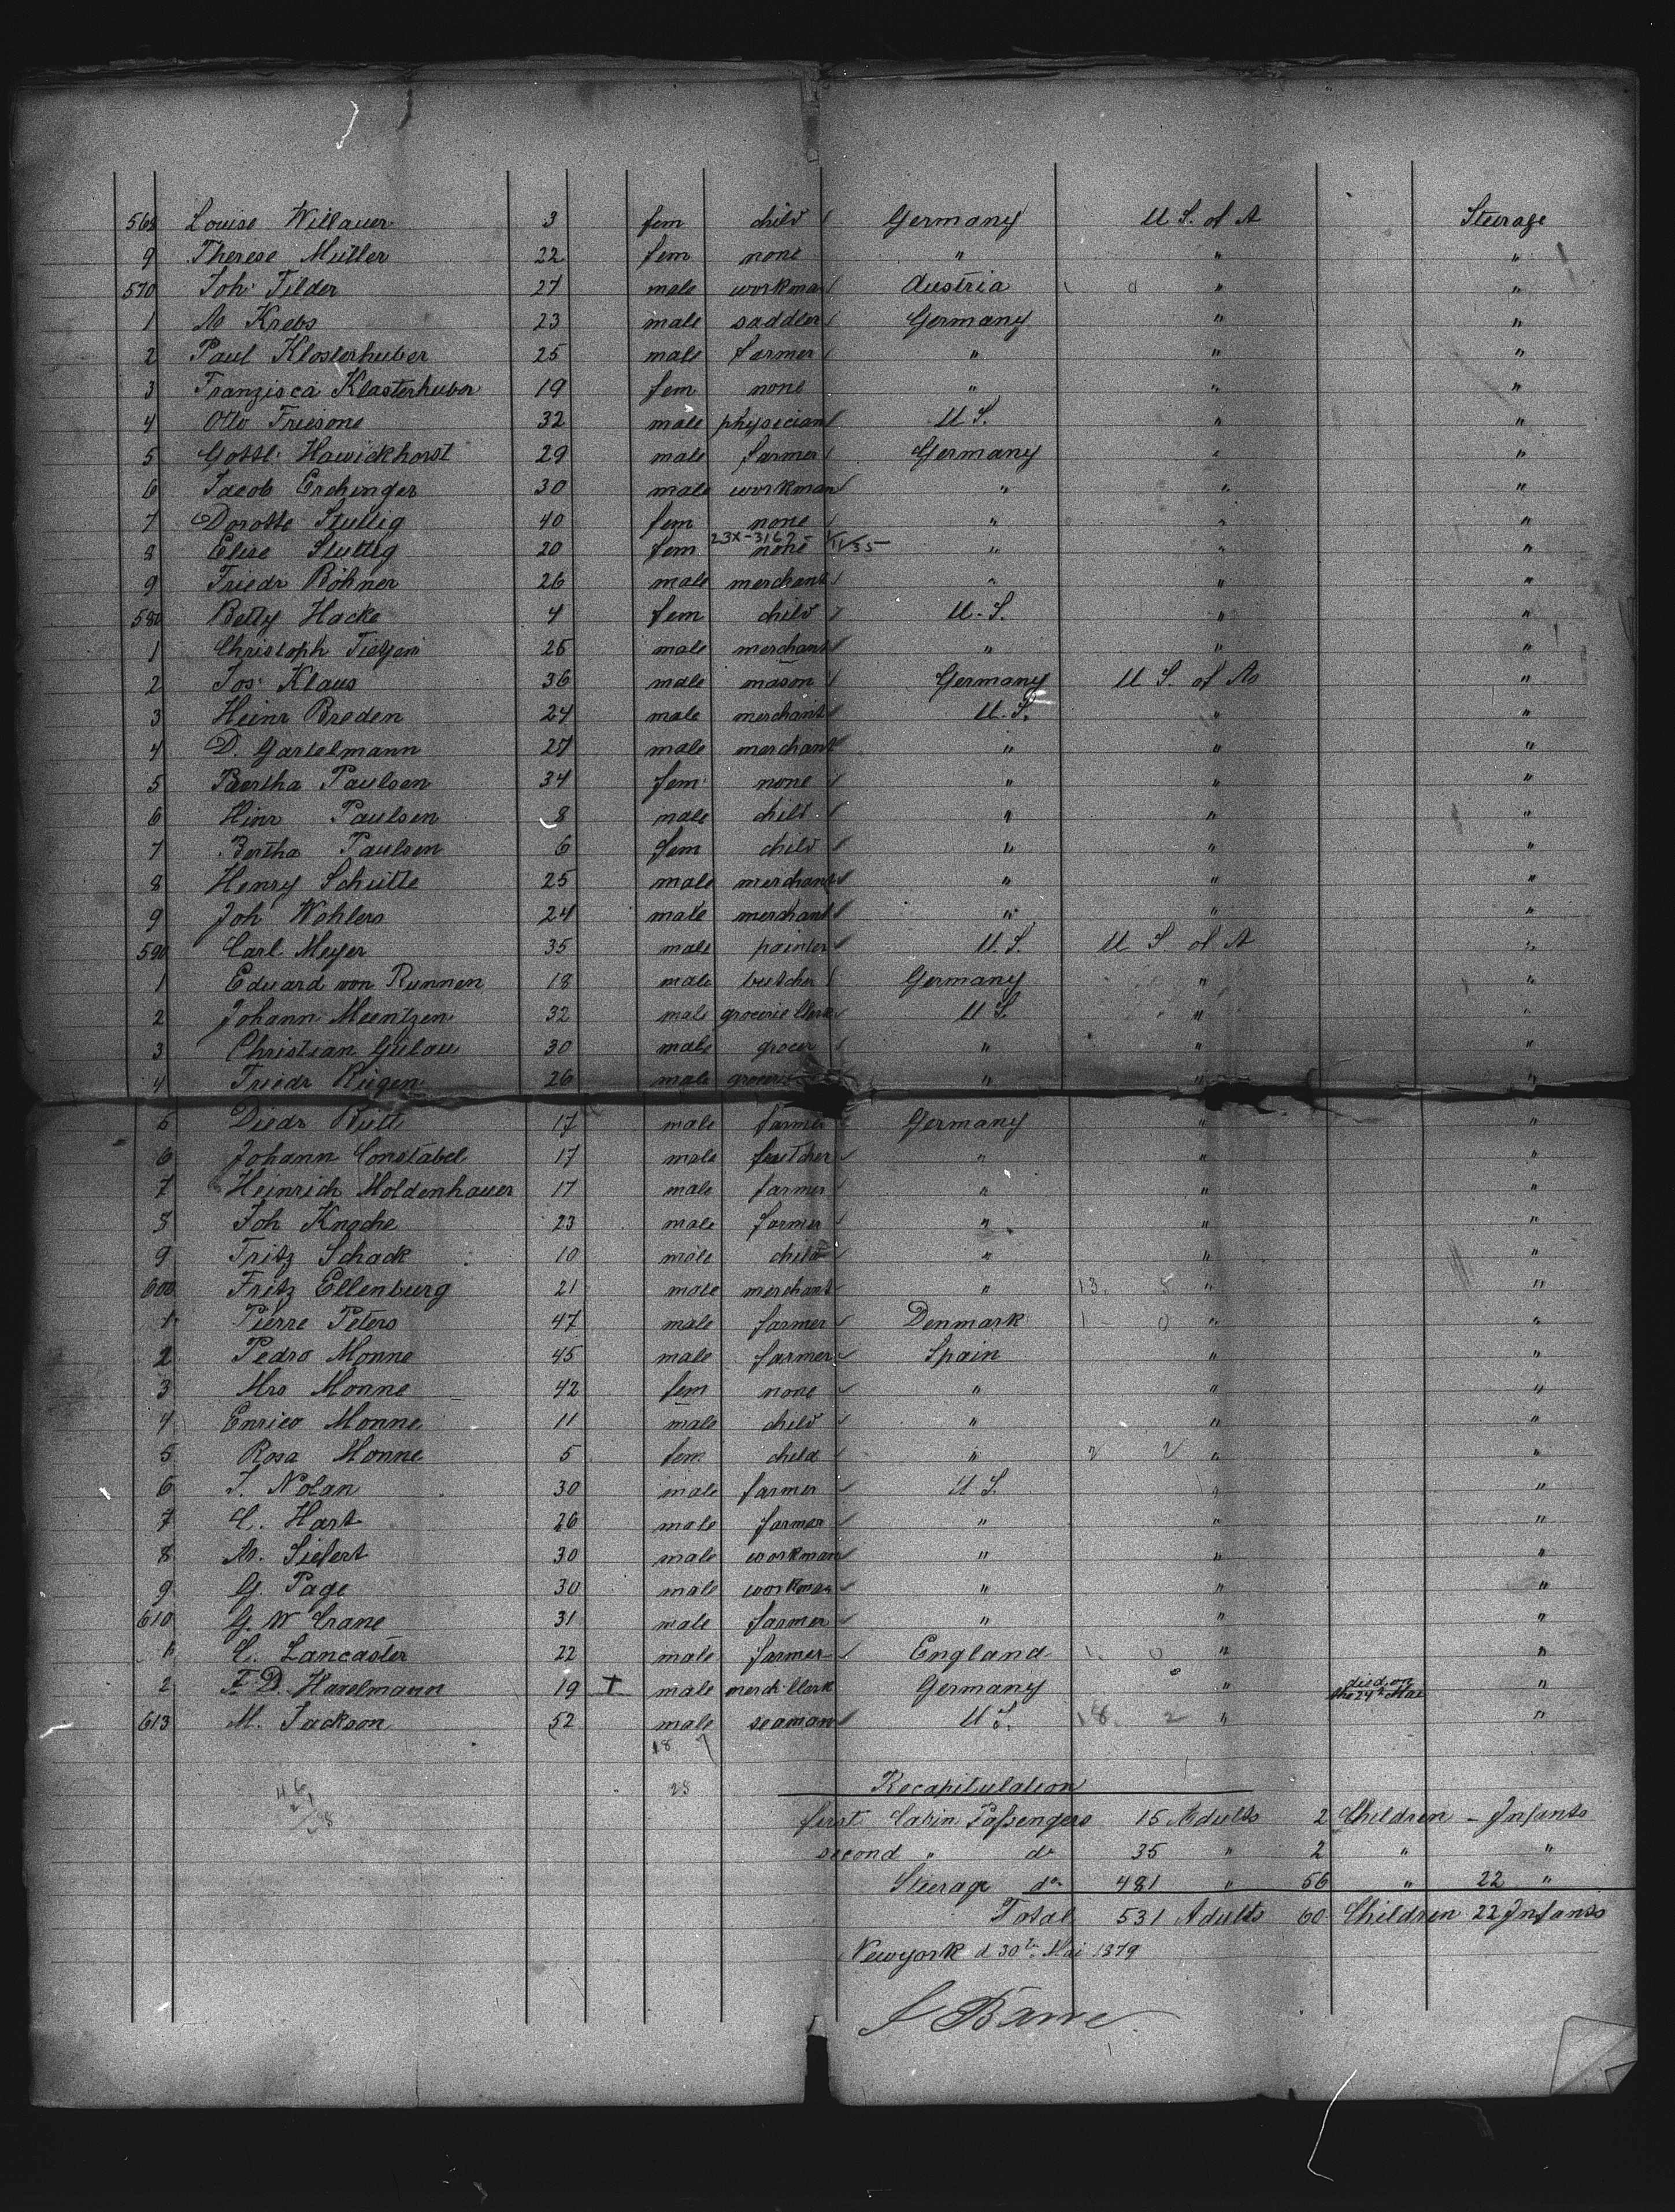 568 Louise Willauer 3 fem child Germany U S. of A Steerage
9 Therese Müller 22 fem none " " "
570 Joh. Filder 27 male workman Austria " "
1 A Krebs 23 male saddler Germany " "
2 Paul Klosterhuber 25 male farmer " " "
3 Franzisca Klosterhuber 19 fem none " " "
4 Otto Friesone 32 male physician U S. " "
5 Gottl. Hawickhorst 29 male farmer Germany " "
6 Jacob Erchinger 30 male workman " " "
7 Dorothe Stuttig 40 fem none " " "
23X-3162
8 Elise Stuttig 20 fem none " " "
9 Friedr Böhner 26 male merchant " " "
580 Betty Hacke 4 fem child U. S. " "
1 Christoph Tietjen 25 male merchant " " "
2 Jos. Klaus 36 male mason Germany U S. of A "
3 Heinr Breden 24 male merchant U. S. " "
4 D. Gartelmann 27 male merchant " " "
5 Bertha Paulsen 34 fem none " " "
6 Hinr Paulsen 8 male child " " "
7 Bertha Paulsen 6 fem child " " "
8 Henry Schütte 25 male merchant " " "
9 Joh Wohlers 24 male merchant " " "
590 Carl Meyer 35 male painter U. S. U S of A "
1 Eduard von Runnen 18 male butcher Germany " "
2 Johann Meentzen 32 male grocerie Clerk U S. " "
3 Christian Gülau 30 male grocer " " "
4 Friedr Rügen 26 male " " "
5 Diedr Bütt 17 male farmer Germany " "
6 Johann Constabel 17 male butcher " " "
7 Heinrich Moldenhauer 17 male farmer " " "
8 Joh Knoche 23 male farmer " " "
9 Fritz Schack 10 male child " " "
600 Fritz Ellenburg 21 male merchant " 13. 8 " "
1 Pierre Peters 47 male farmer Denmark 1 0 " "
2 Pedro Monne 45 male farmer Spain " "
3 Mrs Monne 42 fem none " " "
4 Enrico Monne 11 male child " " "
5 Rosa Monne 5 fem child " 2 2 " "
6 J. Nolan 30 male farmer U S. " "
7 C. Hart 26 male farmer " " "
8 A. Siefert 30 male workman " " "
9 G. Page 30 male workman " " "
610 G. W Crane 31 male farmer " " "
1 C. Lancaster 22 male farmer England 1. 0 " "
2 F. D. Havelmann 19 + male merch Clerk Germany " died on the 24th Mai "
613 M. Jackson 52 male seaman U S. 18. 2 " "
18 7
28
Recapitulation
first Cabin Passengers 15 Adults 2 Children - Infants
second " do 35 " 2 " "
Steerage do 481 " 56 " 22 "
Total 531 Adults 60 Children 22 Infants
Newyork d 30th Mai 1879